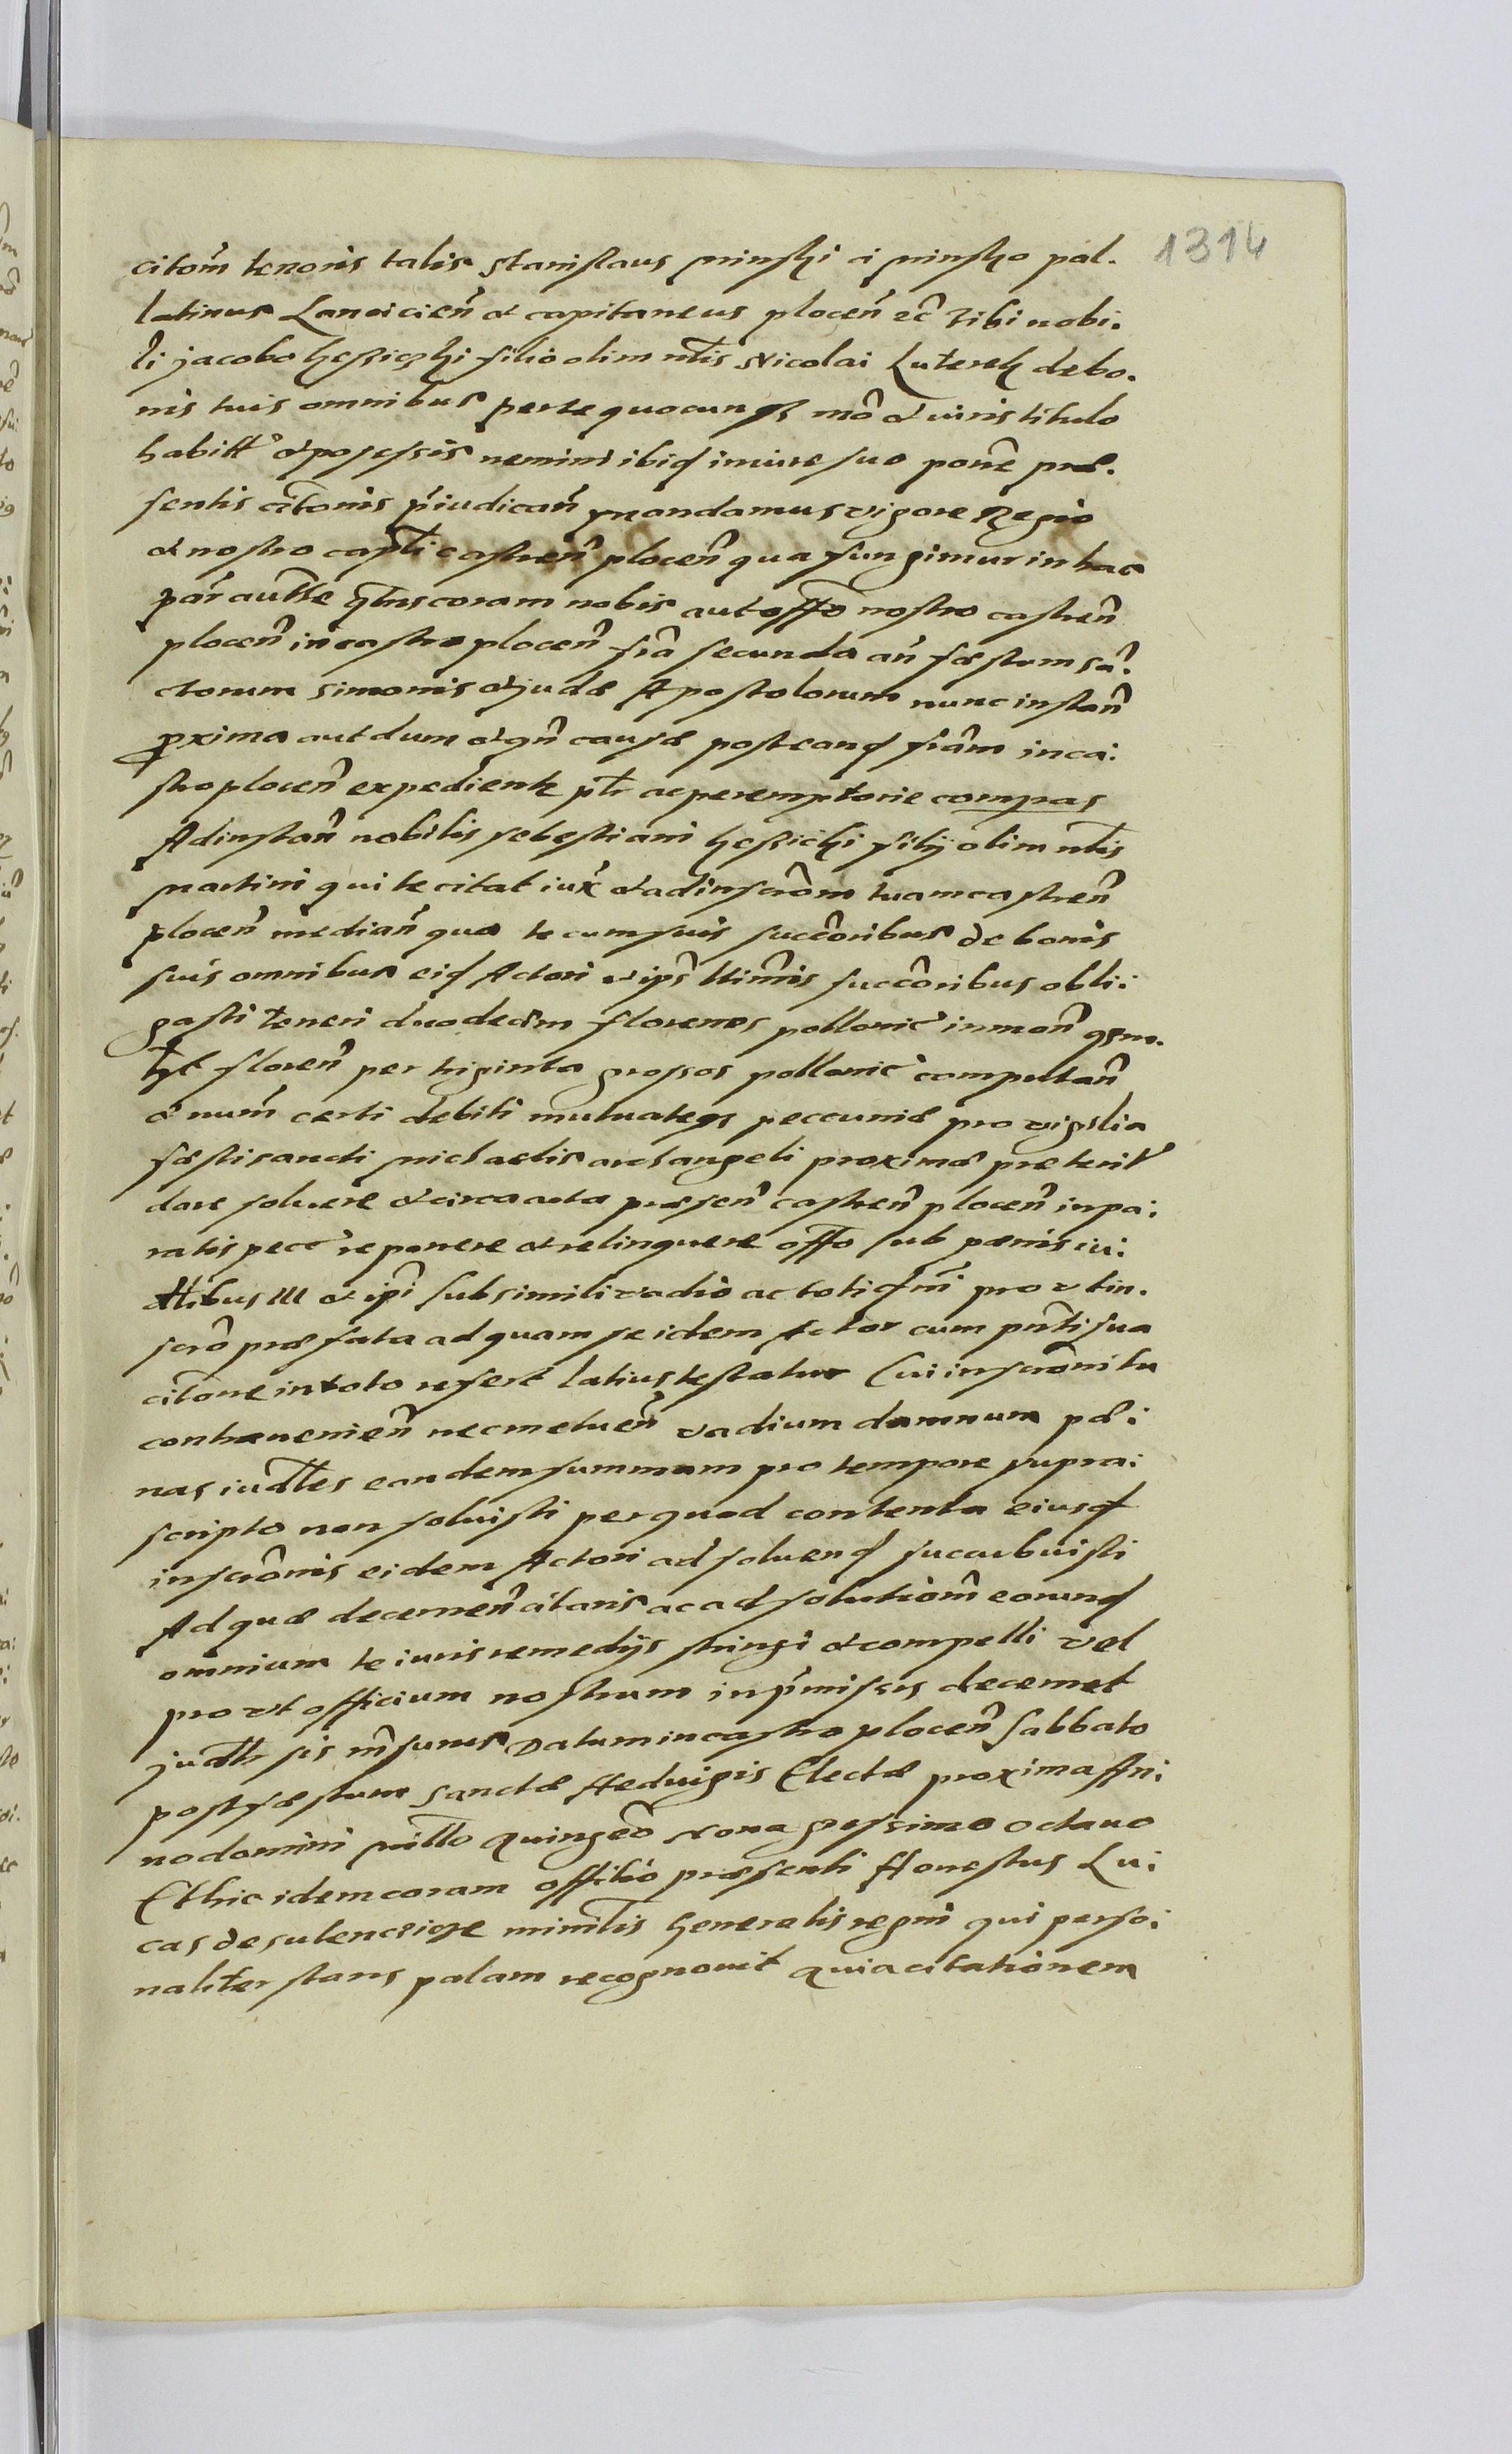 1314
citom̃ tenoris talis Stanislaus Minski a Minsko pal.
latinus Lanciciен̃ et capitaneus ploceñ ec̃ Tibi nobi.
li jacobo filio olim nłis Nicolai Luterek de bo.
nis tuis omnibus per te quocunqȝ mõ et iuris titulo
habitt' et possessis nemini ibid in iure suo põne præ.
sentis citõnis p̃iudican̄ mandamus vigore Regio
et nostro captłi castren̄ plocen̄ qua fungimur in hac
par̃ autħe qtñs coram nobis aut offõ nostro castren̄
plocen̄ in castro plocen̄ fiã secunda an̄ fæstum sã.
ctorum Simonis et judæ Apostolorum nunc instan̄
proxima aut dum et qñ causæ post eand fiãm in ca:
stro plocen̄ expedientr ptr ac peremptorie compas
Ad instan̄ nobilis Sebestiani filij olim nłis
Martini qui te citat iux̃ et ad inscrõm tuam castren̄
plocen̄ median̄ qua te cum suis succõribus de bonis
suis omnibus eid Actori et ips̃ ltimis succõribus obli:
gasti teneri duodecim florenos pollonic̃ in mon̄ qȝ nō.
qȝt floren̄ per triginta grossos pollonic̃ computan̄
et num̃ certi debiti mutuateqȝ peccuniæ pro vigilia
fæsti sancti Michaelis archangeli proximæ preterit'
dare soluere et circa acta præsen̄ castren̄ plocen̄ in pa:
ratis pecc' reponere et relinquere offõ sub pænis iu:
dłibus III et ipĩ sub simili vadio ac totiqm̃ prout in.
scrõ præfata ad quam se idem Actor cum pnti sua
citõne in toto refert latius testatur Cui inscrõni tu
contravenien̄ nec metuen̄ vadium damnum pæ:
nas iudłes eandem summam pro tempore supra:
scripto non soluisti per quod contenta eiusd
inscrõnis eidem Actori ad soluend succubuisti
Ad quæ decernen̄ citaris ac ad solutiom̃ eorund
omnium te iuris remedijs stringi et compelli vel
prout officium nostrum in p̃missis decernet
judłr sis rñsurus Datum in castro plocen̄ Sabbato
post fæstum Sanctæ Heduigis Electæ proxima An:
no domini millo quingeõ Nonagessimo octauo
Et hic idem coram offitio præsenti Honestus Lu:
cas de ministr̃lis Generalis regni qui perso:
naliter stans palam recognouit quia citationem